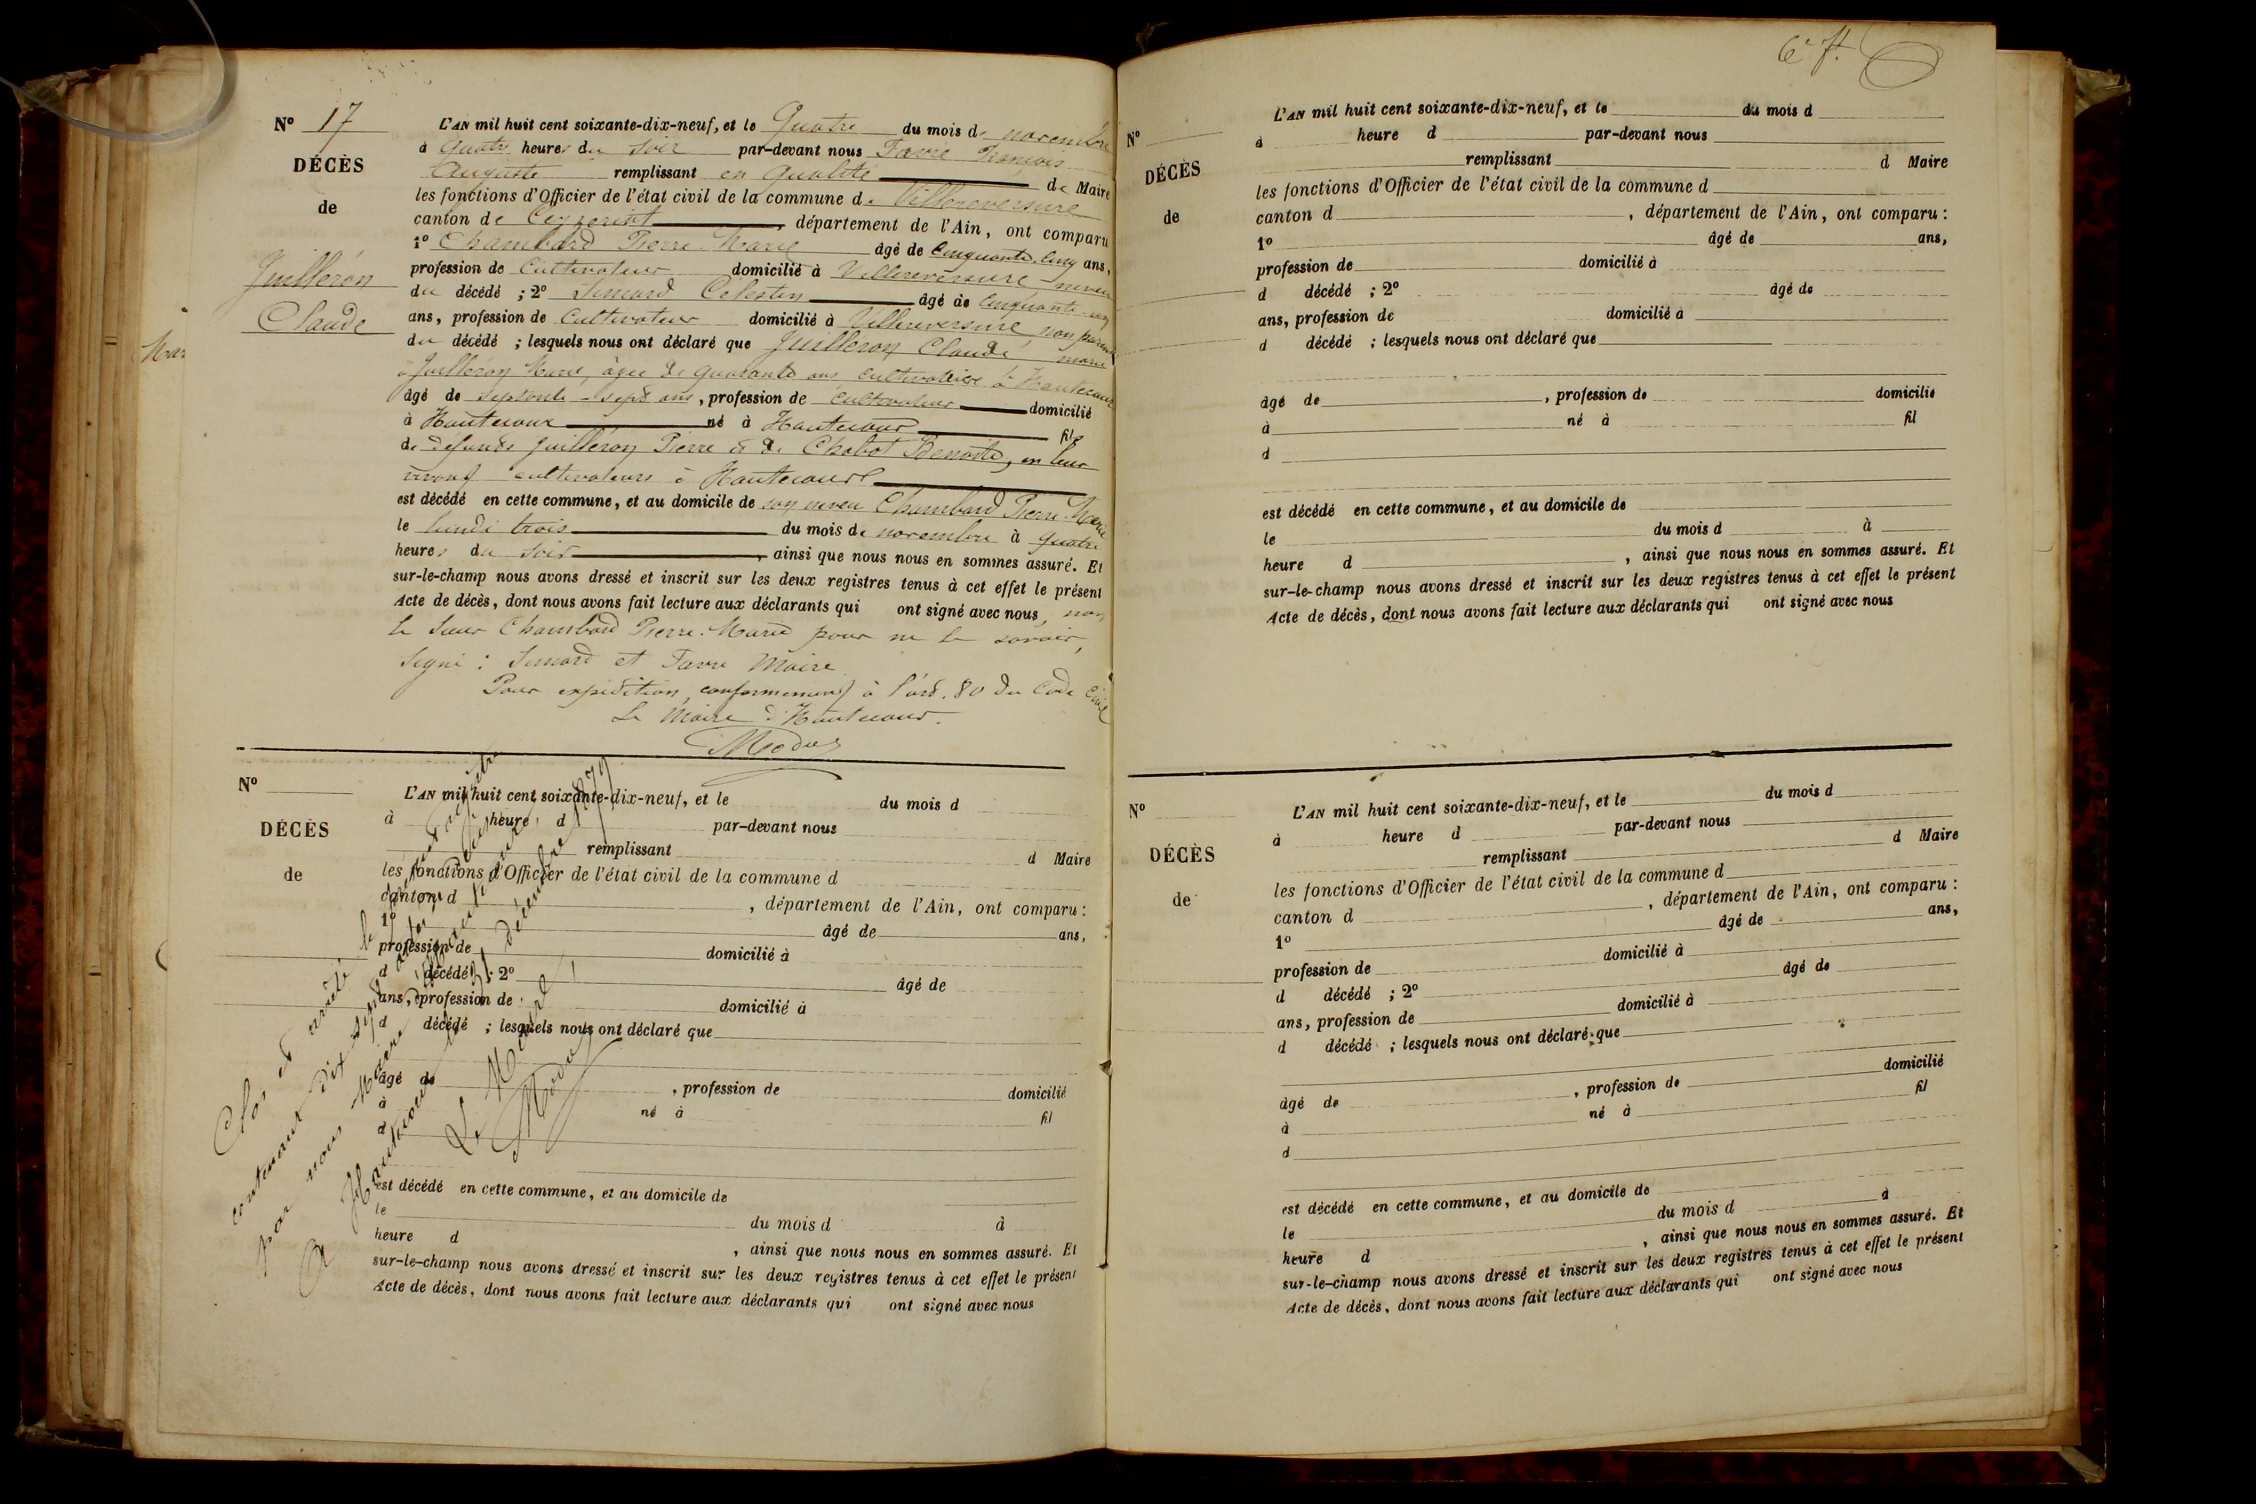 Nº 17
DÉCÈS
de
Juilléron
Claude
L'AN mil huit cent soixante-dix-neuf, et le Quatre du mois de novembre
à quatre heures du soir par-devant nous Favre François
Auguste remplissant en qualité de Maire
les fonctions d'Officier de l'état civil de la commune de Villereversure
canton de Ceyzeriat, département de l'Ain, ont comparu
1º Chambard Pierre-Marie âgé de cinquante cinq ans,
profession de cultivateur domicilié à Villereversure neveu
du décédé ; 2º Simard Celestin âgé de cinquante
ans, profession de cultivateur domicilié à Villereversure non parent
du décédé ; lesquels nous ont déclaré que Juilleron Claude marié
à Juilleron Marie, âgée de quarante ans cultivatrice à Hautecour
âgé de septante-sept ans, profession de cultivateur domicilié
à Hautecour né à Hautecour fils
de défunts Juilléron Pierre & de Chabot Benoite, en leur
vivant cultivateurs à Hautecour
est décédé en cette commune, et au domicile de son neveu Chambard Pierre-Marie
le lundi trois du mois de novembre à quatre
heures du soir, ainsi que nous nous en sommes assuré. Et
sur-le-champ nous avons dressé et inscrit sur les deux registres tenus à cet effet le présent
Acte de décès, dont nous avons fait lecture aux déclarants qui ont signé avec nous, non
le sieur Chambard Pierre-Marie pour ne le savoir,
Signé : Simard et Favre Maire
Pour expédition conformément à l'art. 80 du Code Civil
Le Maire d'Hautecour.
Nº
DÉCÈS
de
L'AN mil huit cent soixante-dix-neuf, et le du mois d
à heure d par-devant nous
remplissant d Maire
les fonctions d'Officier de l'état civil de la commune d
canton d , département de l'Ain, ont comparu :
1º âgé de ans,
profession de domicilié à
d décédé ; 2º âgé de
ans, profession de domicilié à
d décédé ; lesquels nous ont déclaré que
âgé de , profession de domicilié
à né à fil
d
est décédé en cette commune, et au domicile de
le du mois d à
heure d , ainsi que nous nous en sommes assuré. Et
sur-le-champ nous avons dressé et inscrit sur les deux registres tenus à cet effet le présent
Acte de décès, dont nous avons fait lecture aux déclarants qui ont signé avec nous
Clos et arrêté le présent registre
contenant dix sept actes de décès
par nous Maire
A Hautecour le 31 décembre 1879
Le Maire
Nº
DÉCÈS
de
L'AN mil huit cent soixante-dix-neuf, et le du mois d
à heure d par-devant nous
remplissant d Maire
les fonctions d'Officier de l'état civil de la commune d
canton d , département de l'Ain, ont comparu :
1º âgé de ans,
profession de domicilié à
d décédé ; 2º âgé de
ans, profession de domicilié à
d décédé ; lesquels nous ont déclaré que
âgé de , profession de domicilié
à né à fil
d
est décédé en cette commune, et au domicile de
le du mois d à
heure d , ainsi que nous nous en sommes assuré. Et
sur-le-champ nous avons dressé et inscrit sur les deux registres tenus à cet effet le présent
Acte de décès, dont nous avons fait lecture aux déclarants qui ont signé avec nous
Nº
DÉCÈS
de
L'AN mil huit cent soixante-dix-neuf, et le du mois d
à heure d par-devant nous
remplissant d Maire
les fonctions d'Officier de l'état civil de la commune d
canton d , département de l'Ain, ont comparu :
1º âgé de ans,
profession de domicilié à
d décédé ; 2º âgé de
ans, profession de domicilié à
d décédé ; lesquels nous ont déclaré que
âgé de , profession de domicilié
à né à fil
d
est décédé en cette commune, et au domicile de
le du mois d à
heure d , ainsi que nous nous en sommes assuré. Et
sur-le-champ nous avons dressé et inscrit sur les deux registres tenus à cet effet le présent
Acte de décès, dont nous avons fait lecture aux déclarants qui ont signé avec nous